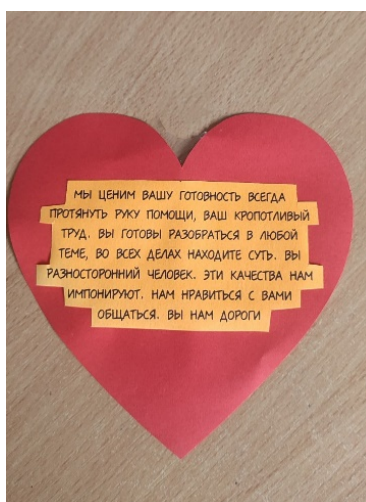 МЫ ЦЕНИМ ВАШУ ГОТОВНОСТЬ ВСЕГДА
ПРОТЯНУТЬ РУКУ ПОМОЩИ, ВАШ КРОПОТЛИВЫЙ
ТРУД. ВЫ ГОТОВЫ РАЗОБРАТЬСЯ В ЛЮБОЙ
ТЕМЕ, ВО ВСЕХ ДЕЛАХ НАХОДИТЕ СУТЬ. ВЫ
РАЗНОСТОРОННИЙ ЧЕЛОВЕК. ЭТИ КАЧЕСТВА НАМ
ИМПОНИРУЮТ. НАМ НРАВИТЬСЯ С ВАМИ
ОБЩАТЬСЯ. ВЫ НАМ ДОРОГИ